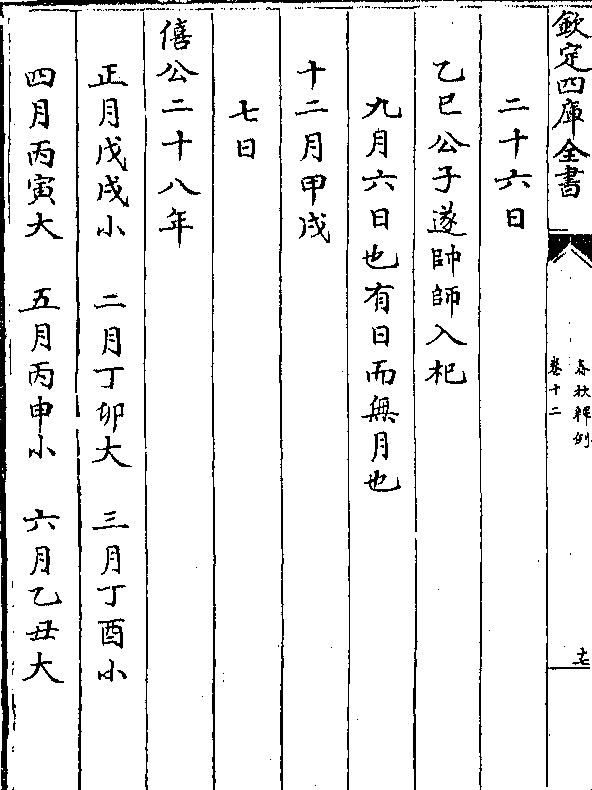 欽定四庫全書
春秋釋例
卷十二
二十六日
乙巳公子遂帥師入杞
九月六日也有日而無月也
十二月甲戌
七日
僖公二十八年
正月戊戌小 二月丁卯大 三月丁酉小
四月丙寅大 五月丙申小 六月乙丑大